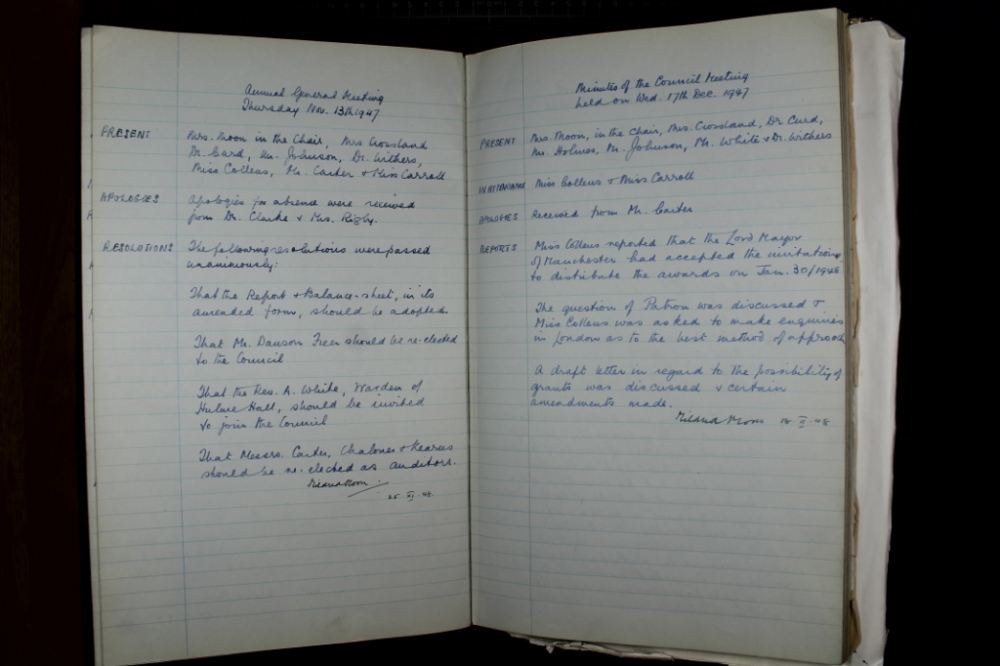 Annual General Meeting
Thursday Nov. 13th 1947
PRESENT Mrs. Moon in the Chair, Mrs Crossland
Dr. Curd, Mr. Johnson, Dr. Withers,
Miss Collens, Mr. Carter & Miss Carroll
APOLOGIES Apologies for absence were received
from Dr. Clarke & Mrs. Rigby.
RESOLUTIONS The following resolutions were passed
unanimously:
That the Report & Balance-sheet, in its
amended form, should be adopted.
That Mr. Dawson Freer should be re-elected
to the Council
That the Rev. A. White, Warden of
Hulme Hall, should be invited
to join the Council
That Messrs. Carter, Chaloner & Kearns
should be re-elected as auditors.
Moon
25. XI. 48.
Minutes of the Council Meeting
held on Wed. 17th Dec. 1947
PRESENT Mrs. Moon, in the Chair, Mrs. Crossland, Dr Curd,
Mr. Holmes, Mr. Johnson, Mr. White & Dr. Withers
IN ATTENDANCE Miss Collens & Miss Carroll
APOLOGIES Received from Mr. Carter
REPORTS Miss Collens reported that the Lord Mayor
of Manchester had accepted the invitation
to distribute the awards on Jan. 30/1948
The question of Patron was discussed &
Miss Collens was asked to make enquiries
in London as to the best method of approach
A draft letter in regard to the possibility of
grants was discussed & certain
amendments made.
Moon 18 II. 48